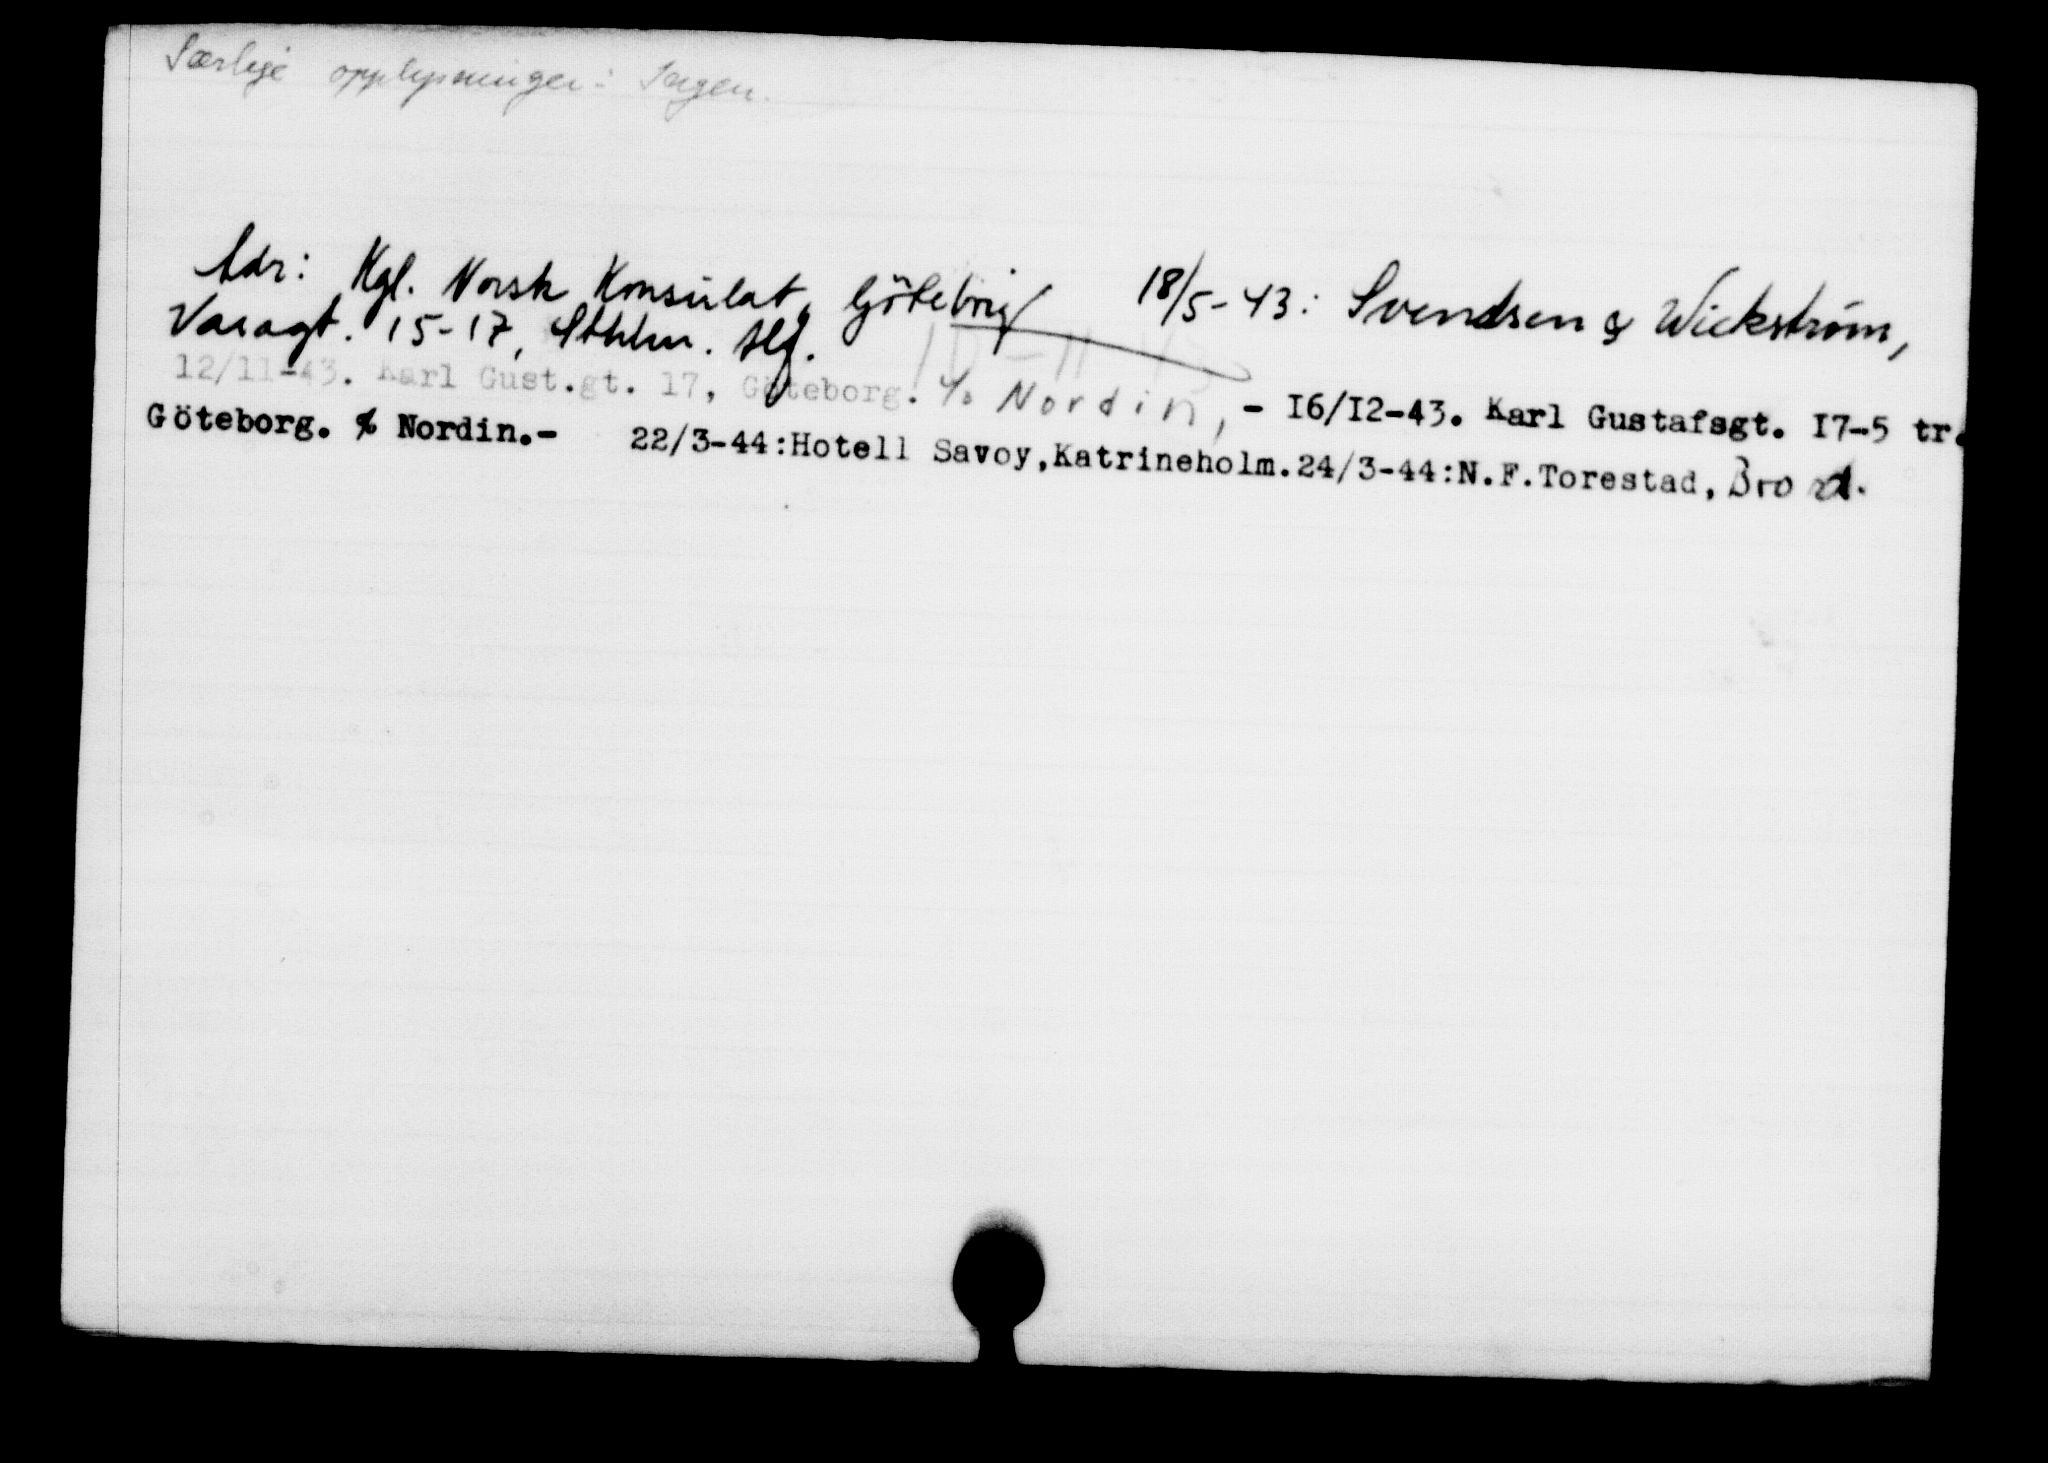 Særlige opplysninger: Ingen.
Adr: Kgl. Norsk Konsulat, Göteborg 18/5-43: Svendsen & Wickstrøm,
Vasagt. 15-17, Sthlm.
12/11-43. Karl Gust.gt. 17, Göteborg. c/o Nordin, - I6/I2-43. Karl Gustafsgt. I7-5 tr.
Göteborg. c/o Nordin.- 22/3-44:Hotell Savoy,Katrineholm.24/3-44:N.F.Torestad,